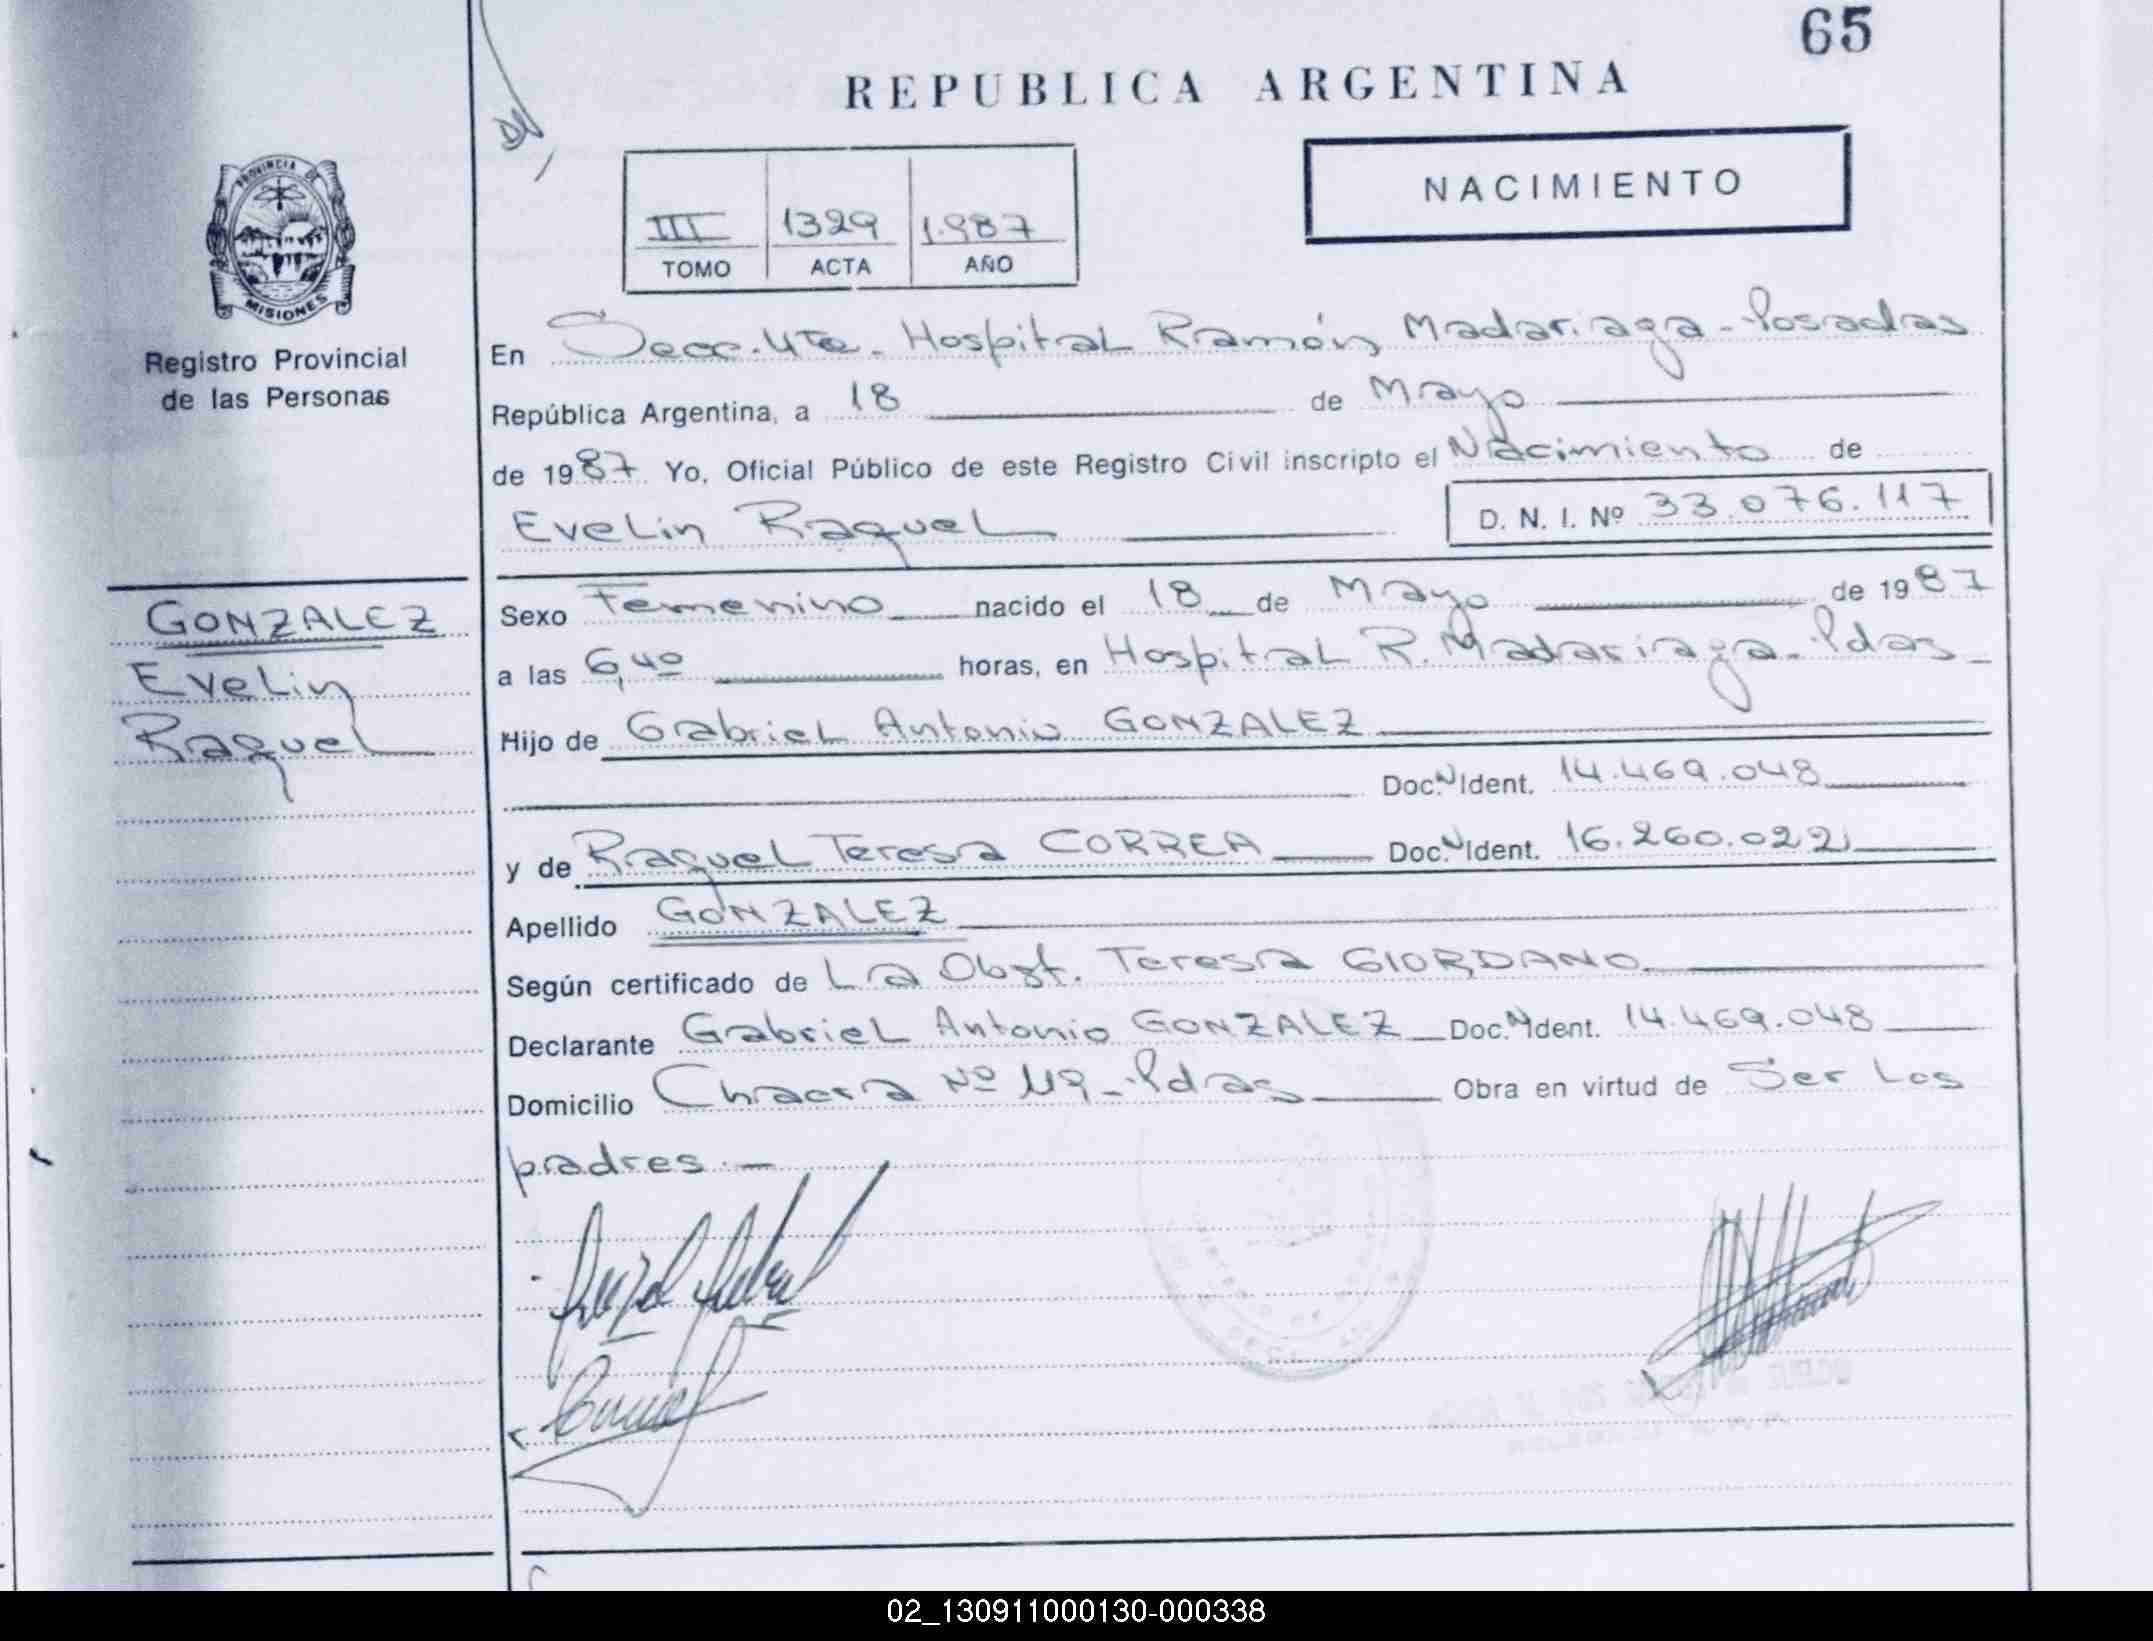 65
REPUBLICA ARGENTINA
NACIMIENTO
III 1329 1.987
TOMO ACTA AÑO
PROVINCIA DE
MISIONES
Registro Provincial
de las Personas
En Secc. 4ta. Hospital Ramón Madariaga - Posadas
República Argentina, a 18 de Mayo
de 1987 Yo, Oficial Público de este Registro Civil inscripto el Nacimiento de
Evelin Raquel D. N. I. Nº 33.076.117
GONZALEZ
Evelin
Raquel
Sexo Femenino nacido el 18 de Mayo de 1987
a las 6,40 horas, en Hospital R. Madariaga - Pdas -
Hijo de Gabriel Antonio GONZALEZ
Doc. N Ident. 14.469.048
y de Raquel Teresa CORREA Doc. N Ident. 16.260.022
Apellido GONZALEZ
Según certificado de La Obst. Teresa GIORDANO
Declarante Gabriel Antonio GONZALEZ Doc. N Ident. 14.469.048
Domicilio Chacra Nº - Pdas Obra en virtud de Ser Los
padres. -
02_130911000130-000338